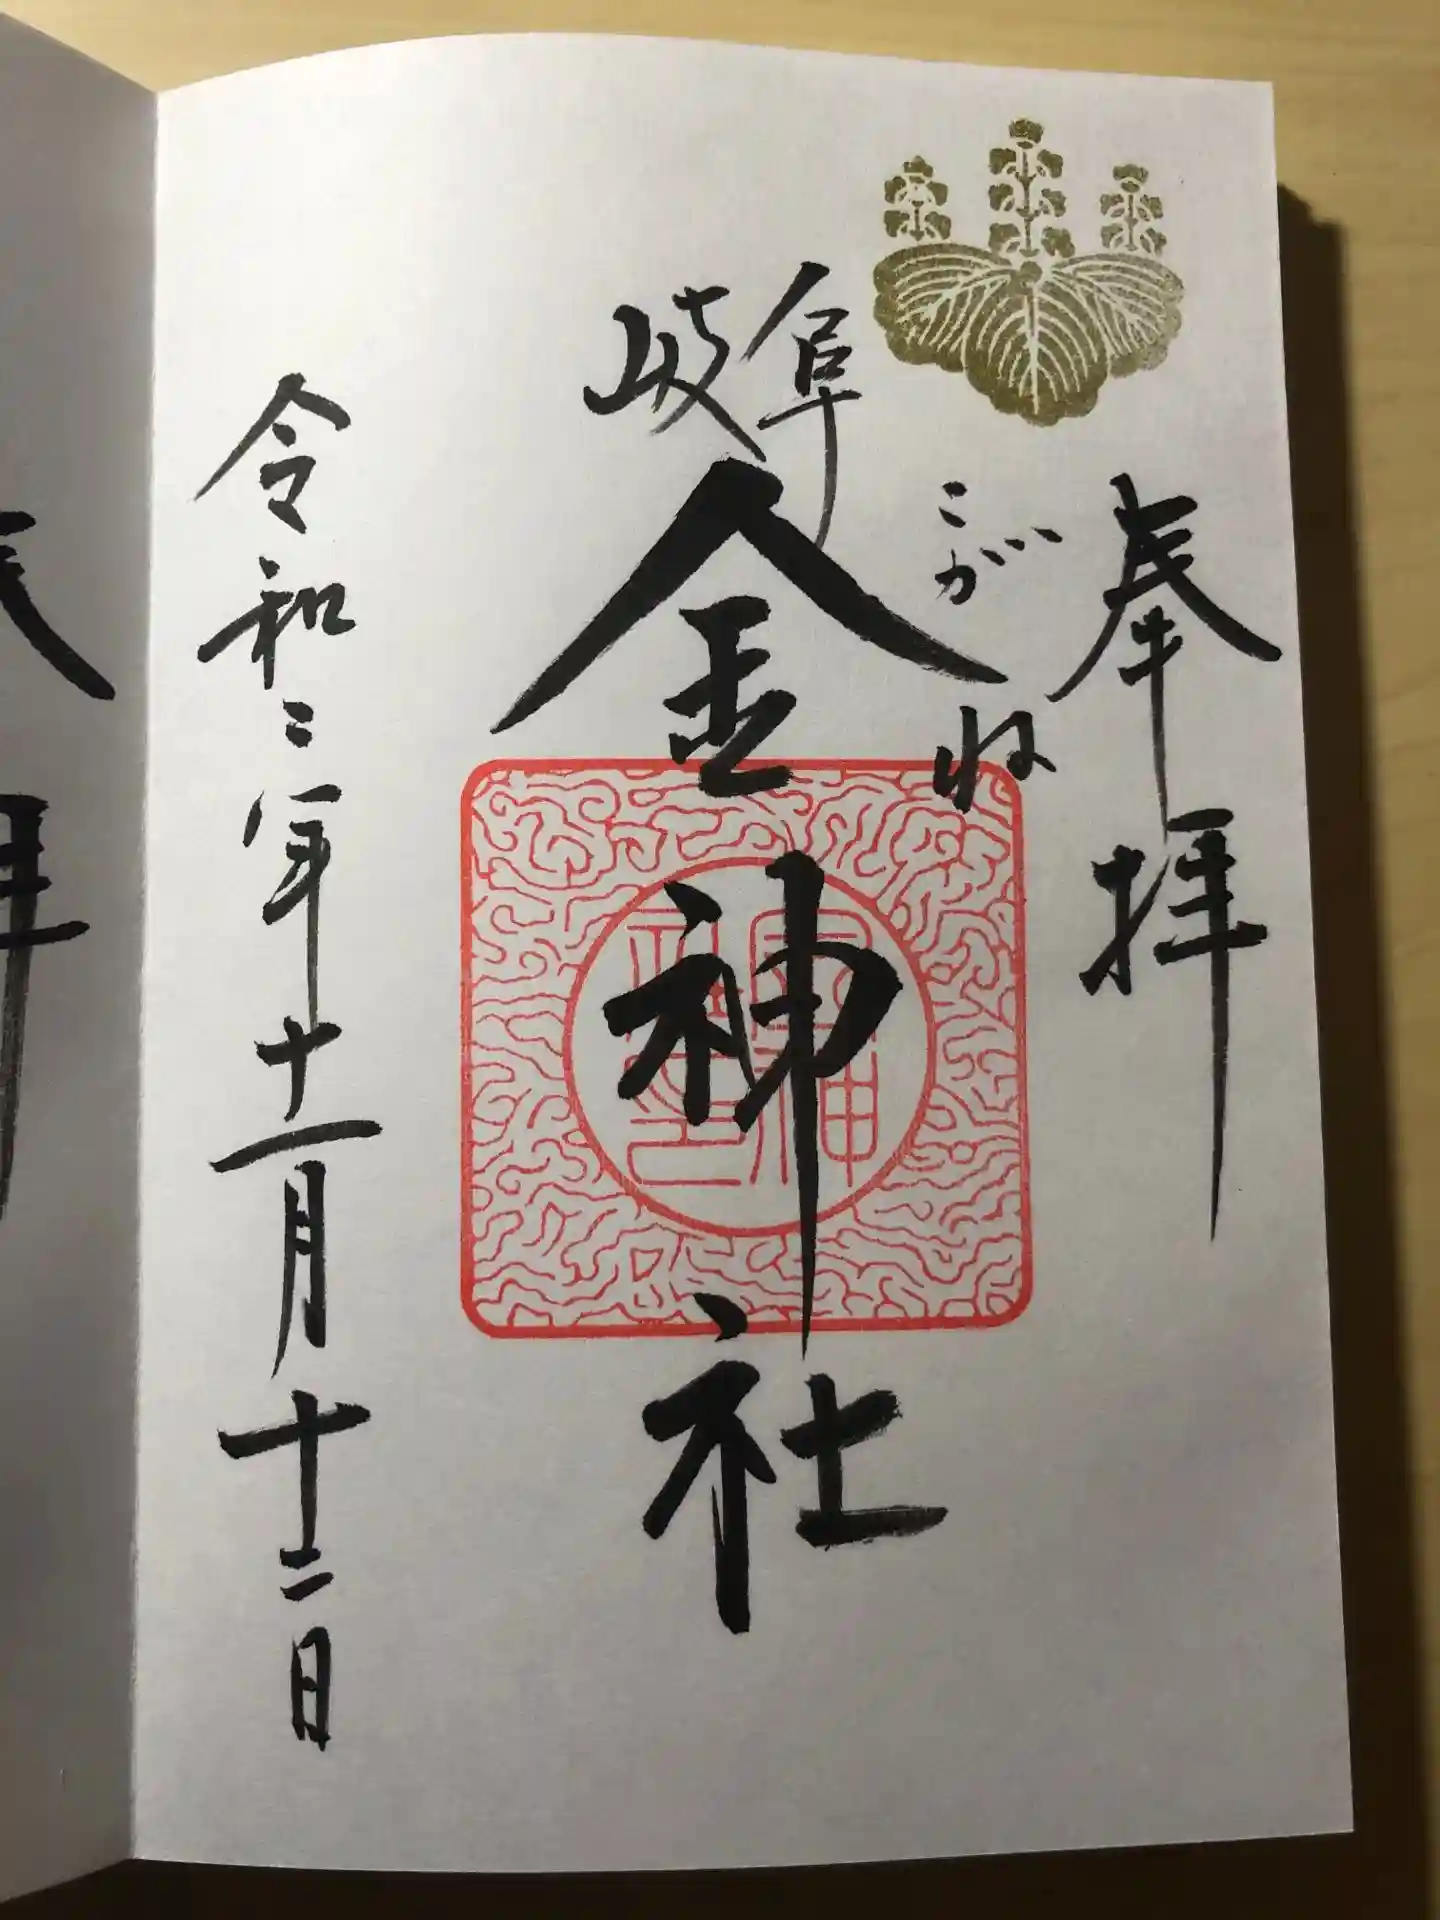 奉拝
こがね
岐阜
金神社
令和二年十一月十二日